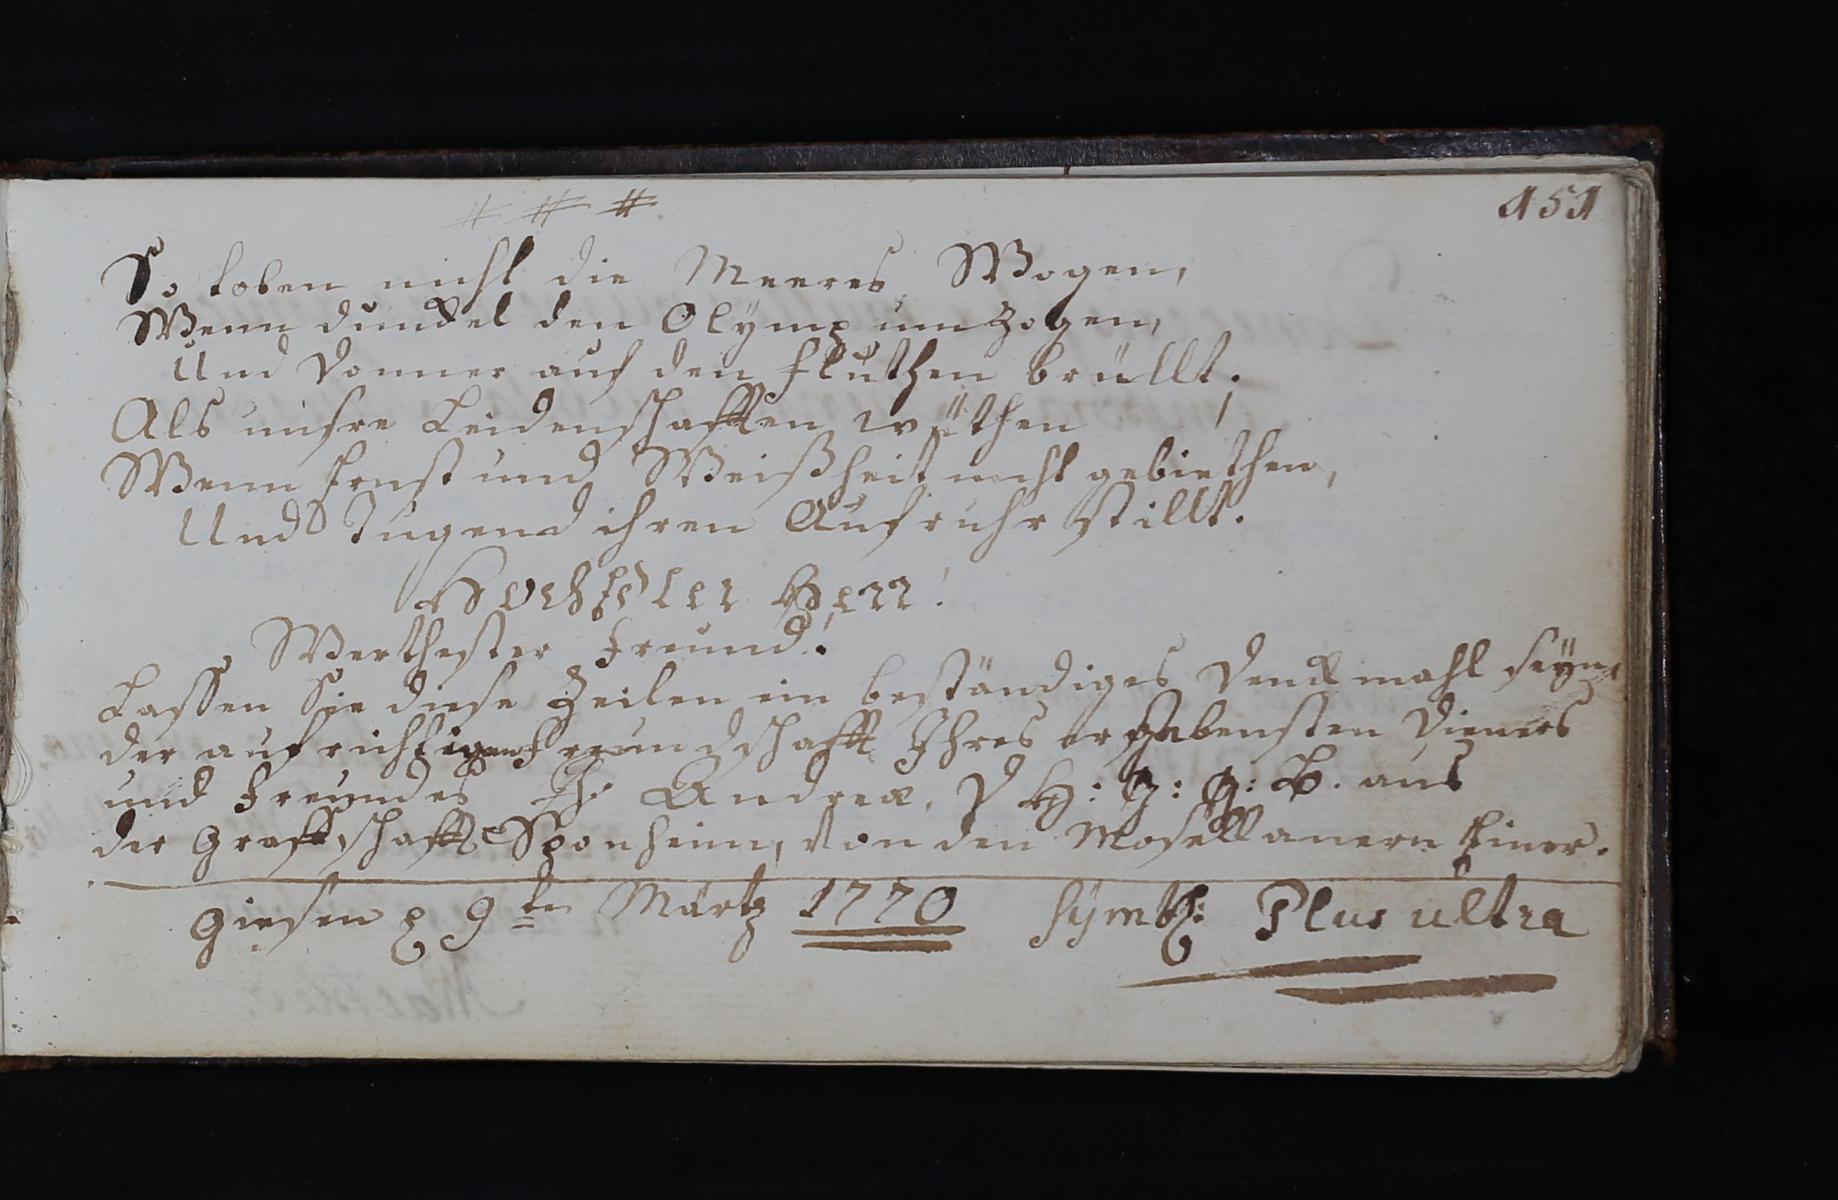 # # #
151
So toben nicht die Meeres Wogen,
Wenn dunckel den Olymp umzogen,
Und Donner auf den fluthen brüllt;
Als unsre Leidenschafften wüthen
Wenn Ernst und Weißheit nicht gebiethen,
Und Tugend ihren Aufruhr stillt.
HochEdler Herr!
Werthester Freund!
Lassen Sie diese Zeilen ein beständiges Denckmahl seyn,
der aufrichtigen Freundschafft Ihres ergebensten Dieners
und Freundes Andreæ, D aus
der Graffschafft Sponheim, von den Mosellanern Einer.
Giesen 9ten Märtz 1770 Symb: Plus ultra